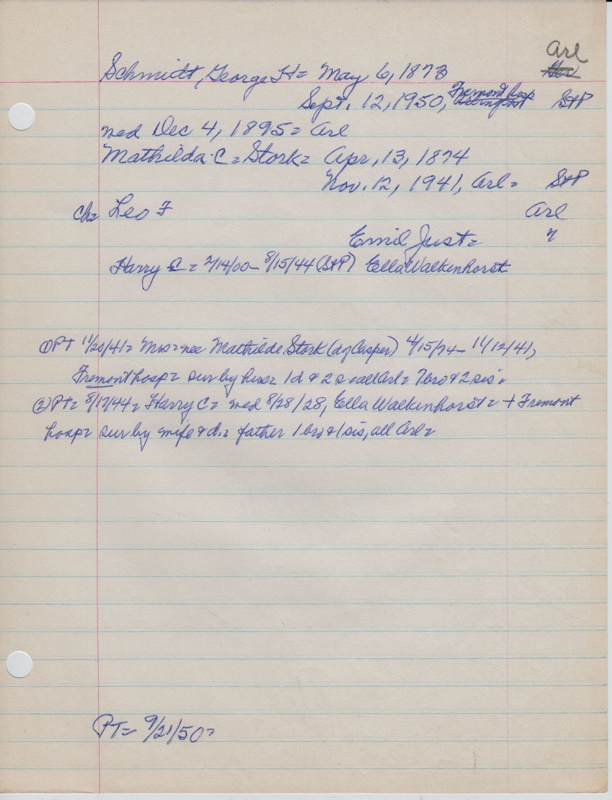 Arl
Schmidt, George H = May 6, 1873
Sept. 12, 1950, Fremont hosp StP
med Dec 4, 1895 = Arl
Mathilda C = Stork = Apr, 13, 1874
Nov. 12, 1941, Arl = StP
ch = Leo F Arl
Emil Just = "
Harry C = 2/14/00 - 8/15/44 (StP) Ella Walkenhorst
① PT 11/20/41 = Mrs = nee Mathilde Stork (d of Casper) 4/15/74 - 11/12/41,
Fremont hosp = sur by hus = 1d & 2s = all Arl = 7 bro & 2 sis =
② PT = 8/17/44 = Harry C = med 8/28/28, Ella Walkenhorst = + Fremont
hosp = sur by wife & d. = father 1 bro & 1 sis, all Arl =
PT = 9/21/50 =